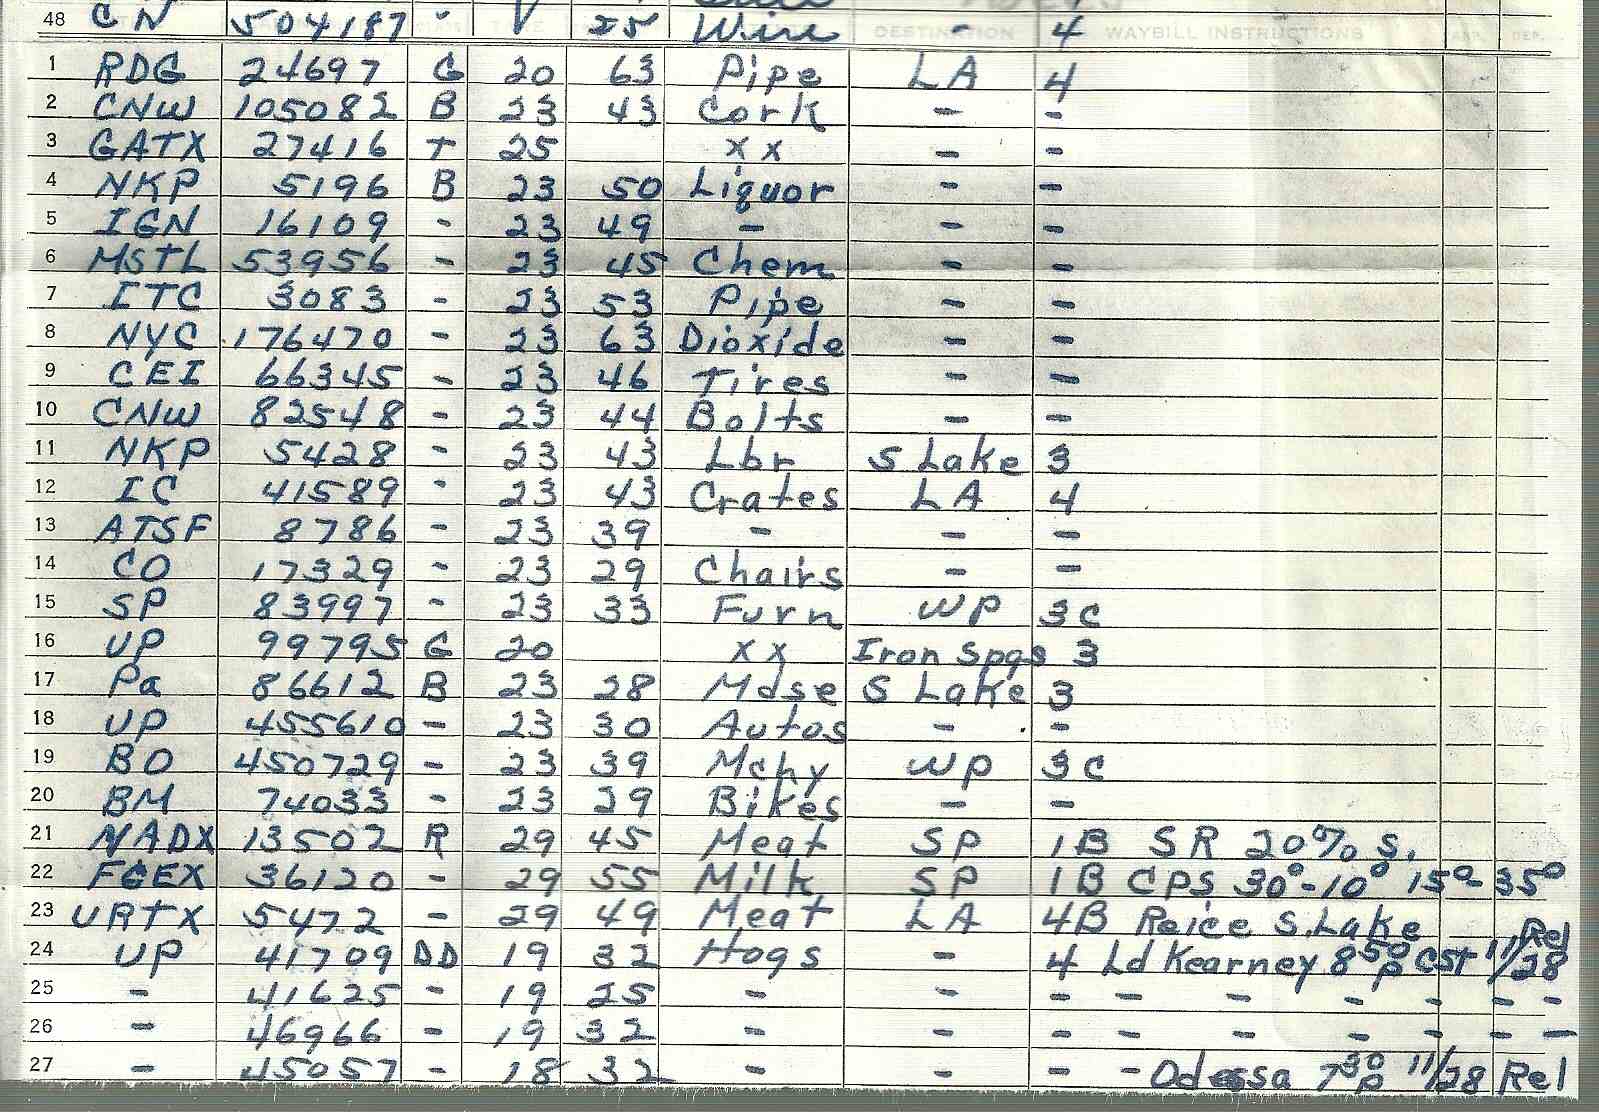 48 CN 504187 - V 25 Wire - 4
DESTINATION WAYBILL INSTRUCTIONS ARR. DEP.
1 RDG 24697 G 20 63 Pipe LA 4
2 CNW 105082 B 23 43 Cork - -
3 GATX 27416 T 25 xx - -
4 NKP 5196 B 23 50 Liquor - -
5 IGN 16109 - 23 49 - - -
6 MSTL 53956 - 23 45 Chem - -
7 ITC 3083 - 23 53 Pipe - -
8 NYC 176470 - 23 63 Dioxide - -
9 CEI 66345 - 23 46 Tires - -
10 CNW 82548 - 23 44 Bolts - -
11 NKP 5428 - 23 43 Lbr S Lake 3
12 IC 41589 - 23 43 Crates LA 4
13 ATSF 8786 - 23 39 - - -
14 CO 17329 - 23 29 Chairs - -
15 SP 83997 - 23 33 Furn WP 3C
16 UP 99795 G 20 xx Iron Spgs 3
17 Pa 86612 B 23 28 Mdse S Lake 3
18 UP 455610 - 23 30 Autos - -
19 BO 450729 - 23 39 Mchy WP 3C
20 BM 74033 - 23 29 Bikes - -
21 NADX 13502 R 29 45 Meat SP 1B SR 20% S.
22 FGEX 36120 - 29 55 Milk SP 1B CPS 30°-10° 15°-35°
23 URTX 5472 - 29 49 Meat LA 4B Reice S. Lake
24 UP 41709 DD 19 32 Hogs - 4 Ld Kearney 8 50 P CST 11/28 Rel
25 - 41625 - 19 25 - - - - - - - - -
26 - 46966 - 19 32 - - - - - - - - -
27 - 45057 - 18 32 - - - - Odessa 7 30 P 11/28 Rel